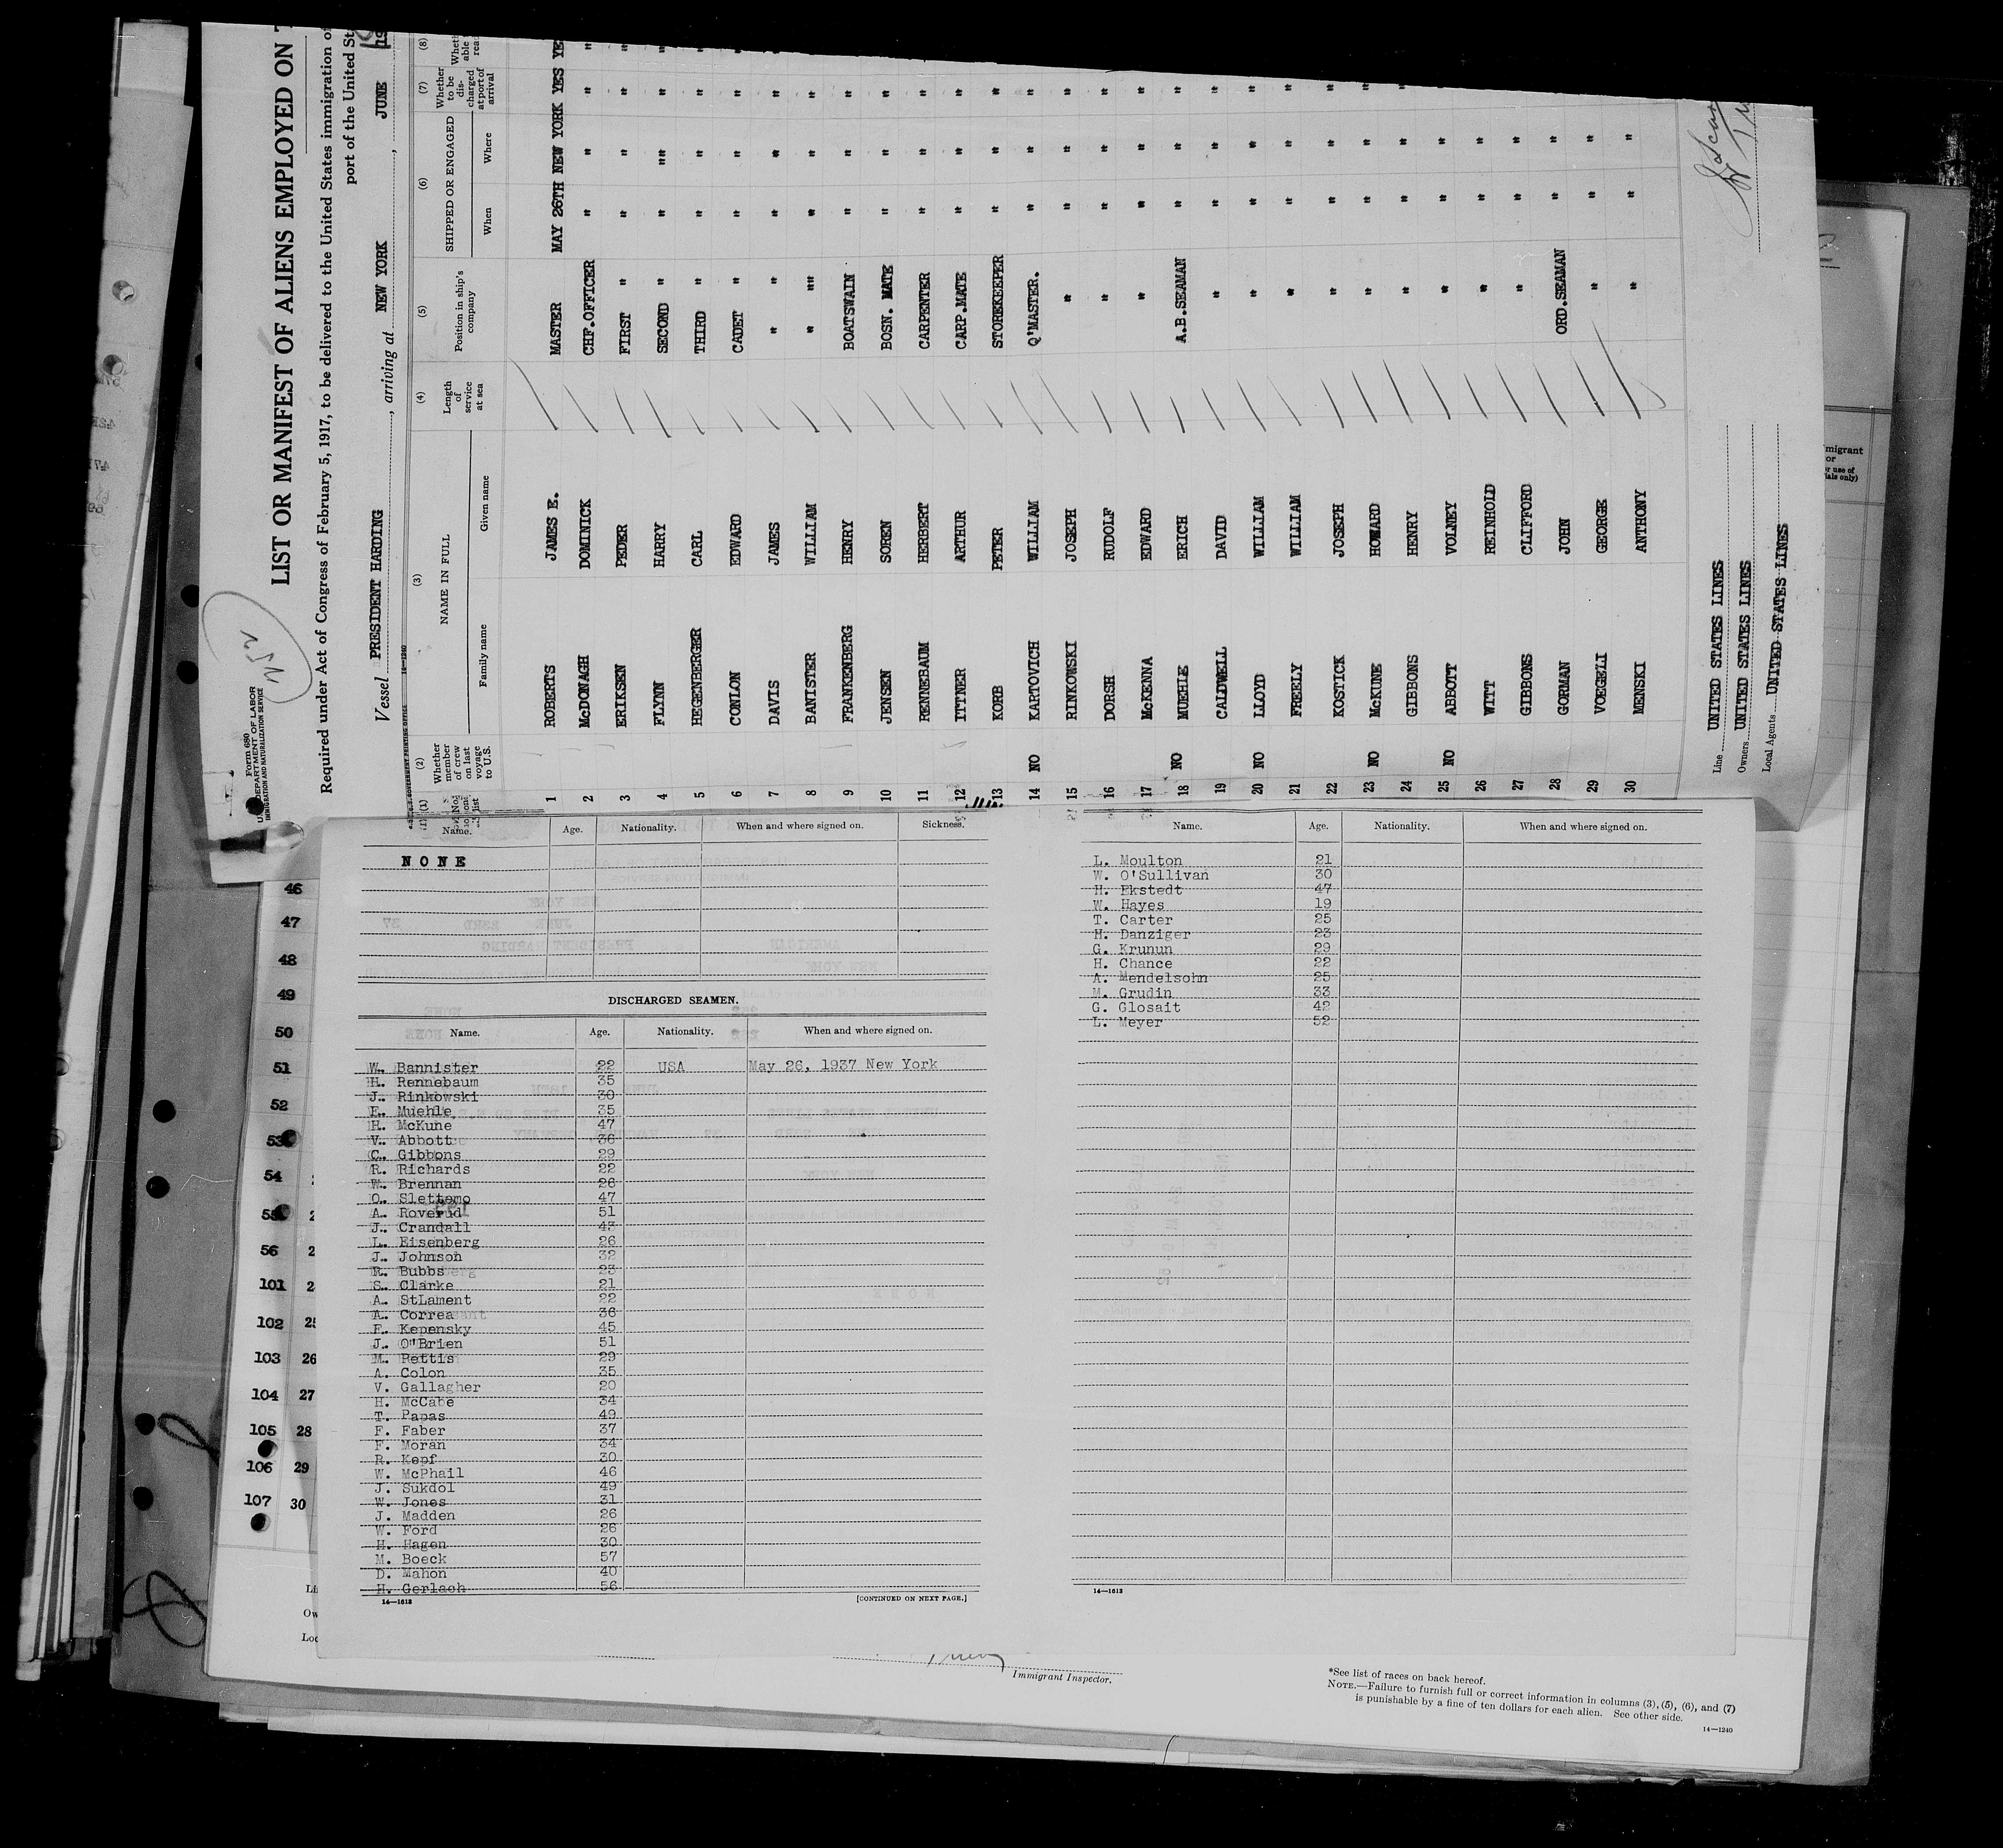 Form 680
U. S. DEPARTMENT OF LABOR
IMMIGRATION AND NATURALIZATION SERVICE
LIST OR MANIFEST OF ALIENS EMPLOYED ON
Required under Act of Congress of February 5, 1917, to be delivered to the United States immigration
port of the United
Vessel PRESIDENT HARDING, arriving at NEW YORK, JUNE
14—1240
(1) (2) (3) (4) (5) (6) (7) (8)
No. on list
Whether member of crew on last voyage to U.S.
NAME IN FULL
Family name Given name
Length of service at sea
Position in ship's company
SHIPPED OR ENGAGED
When Where
Whether to be discharged at port of arrival
1 ROBERTS JAMES E. MASTER MAY 26TH NEW YORK YES
2 McDONAGH DOMINICK CHF.OFFICER " " " "
3 ERIKSEN PEDER FIRST " " " " "
4 FLYNN HARRY SECOND " " "" " "
5 HEGENBERGER CARL THIRD " " " " "
6 CONLON EDWARD CADET " " " " "
7 DAVIS JAMES " " " " " "
8 BANISTER WILLIAM " "" " " " "
9 FRANKENBERG HENRY BOATSWAIN " " " "
10 JENSEN SOREN BOSN. MATE " " " "
11 RENNEBAUM HERBERT CARPENTER " " " "
12 ITTNER ARTHUR CARP.MATE " " " "
13 KORB PETER STOREKEEPER " " " "
14 NO KARTOVICH WILLIAM Q'MASTER. " " " "
15 RINKOWSKI JOSEPH " " " " "
16 DORSH RUDOLF " " " " "
17 McKENNA EDWARD " " " " "
18 NO MUEHLE ERICH A.B.SEAMAN " " " "
19 CALDWELL DAVID " " " "
20 NO LLOYD WILLIAM " " " "
21 FREELY WILLIAM " " " "
22 KOSTICK JOSEPH " " " "
23 NO McKUNE HOWARD " " " "
24 GIBBONS HENRY " " " "
25 NO ABBOTT VOLNEY " " "
26 WITT REINHOLD " " "
27 GIBBONS CLIFFORD " " "
28 GORMAN JOHN ORD.SEAMAN " "
29 VOEGELI GEORGE " " "
30 MENSKI ANTHONY " " "
Line UNITED STATES LINES
Owners UNITED STATES LINES
Local Agents UNITED STATES LINES
Name. Age. Nationality. When and where signed on. Sickness.
NONE
DISCHARGED SEAMEN.
Name. Age. Nationality. When and where signed on.
W. Bannister 22 USA May 26, 1937 New York
H. Rennebaum 35
J. Rinkowski 30
E. Muehle 35
H. McKune 47
V. Abbott 36
C. Gibbons 29
R. Richards 22
W. Brennan 26
O. Slettemo 47
A. Roverud 51
J. Crandall 43
L. Eisenberg 26
J. Johnson 32
R. Bubbs 23
S. Clarke 21
A. StLament 22
A. Correa 36
F. Kepensky 45
J. O"Brien 51
M. Pettis 29
A. Colon 35
V. Gallagher 20
H. McCabe 34
T. Papas 49
F. Faber 37
F. Moran 34
R. Kepf 30
W. McPhail 46
J. Sukdol 49
W. Jones 31
J. Madden 26
W. Ford 26
H. Hagen 30
M. Boeck 57
D. Mahon 40
H. Gerlach 56
14—1613 [CONTINUED ON NEXT PAGE.]
Name. Age. Nationality. When and where signed on.
L. Moulton 21
W. O'Sullivan 30
H. Ekstedt 47
W. Hayes 19
T. Carter 25
H. Danziger 23
G. Krunun 29
H. Chance 22
A. Mendelsohn 25
M. Grudin 33
G. Glosait 42
L. Meyer 52
14—1613
46
47
48
49
50
51
52
53
54
55 2
56 2
101 2
102 25
103 26
104 27
105 28
106 29
107 30
Immigrant Inspector.
*See list of races on back hereof.
NOTE.—Failure to furnish full or correct information in columns (3), (5), (6), and (7)
is punishable by a fine of ten dollars for each alien. See other side.
14—1240